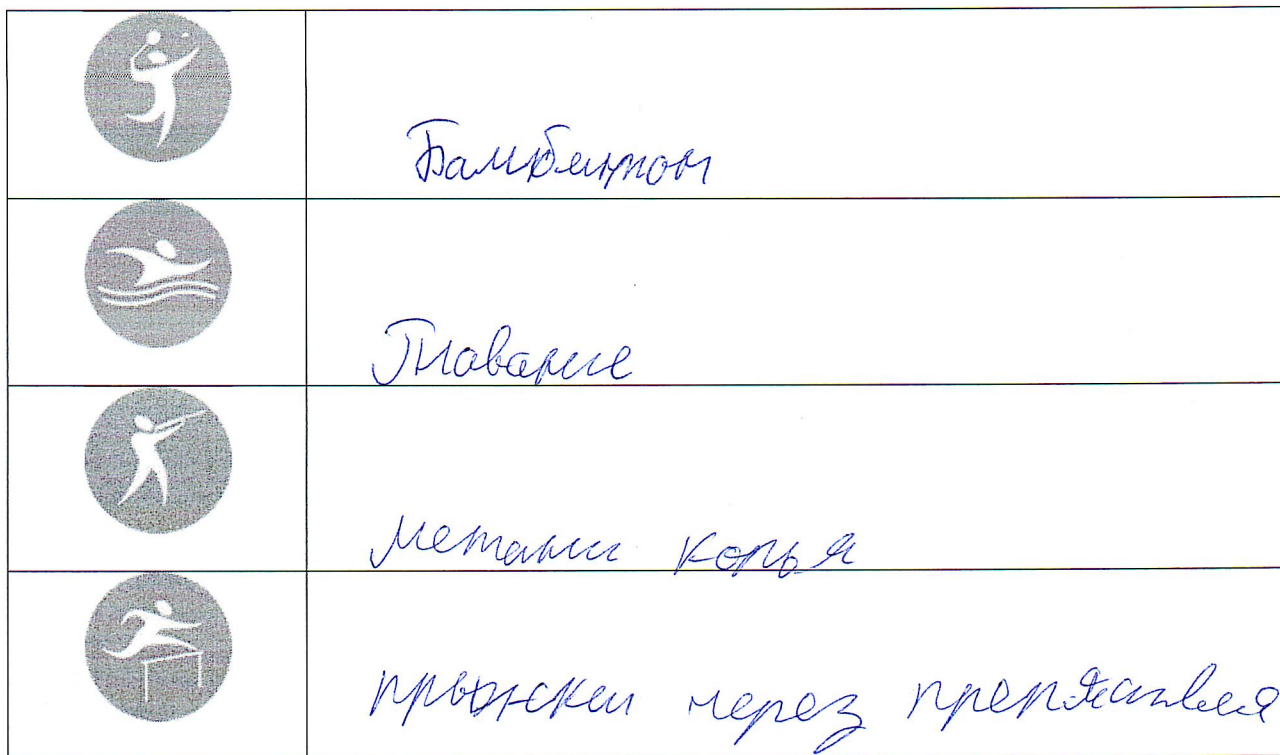 Бамбинтон
Плавание
Метании копья
прыжки через препятсвея